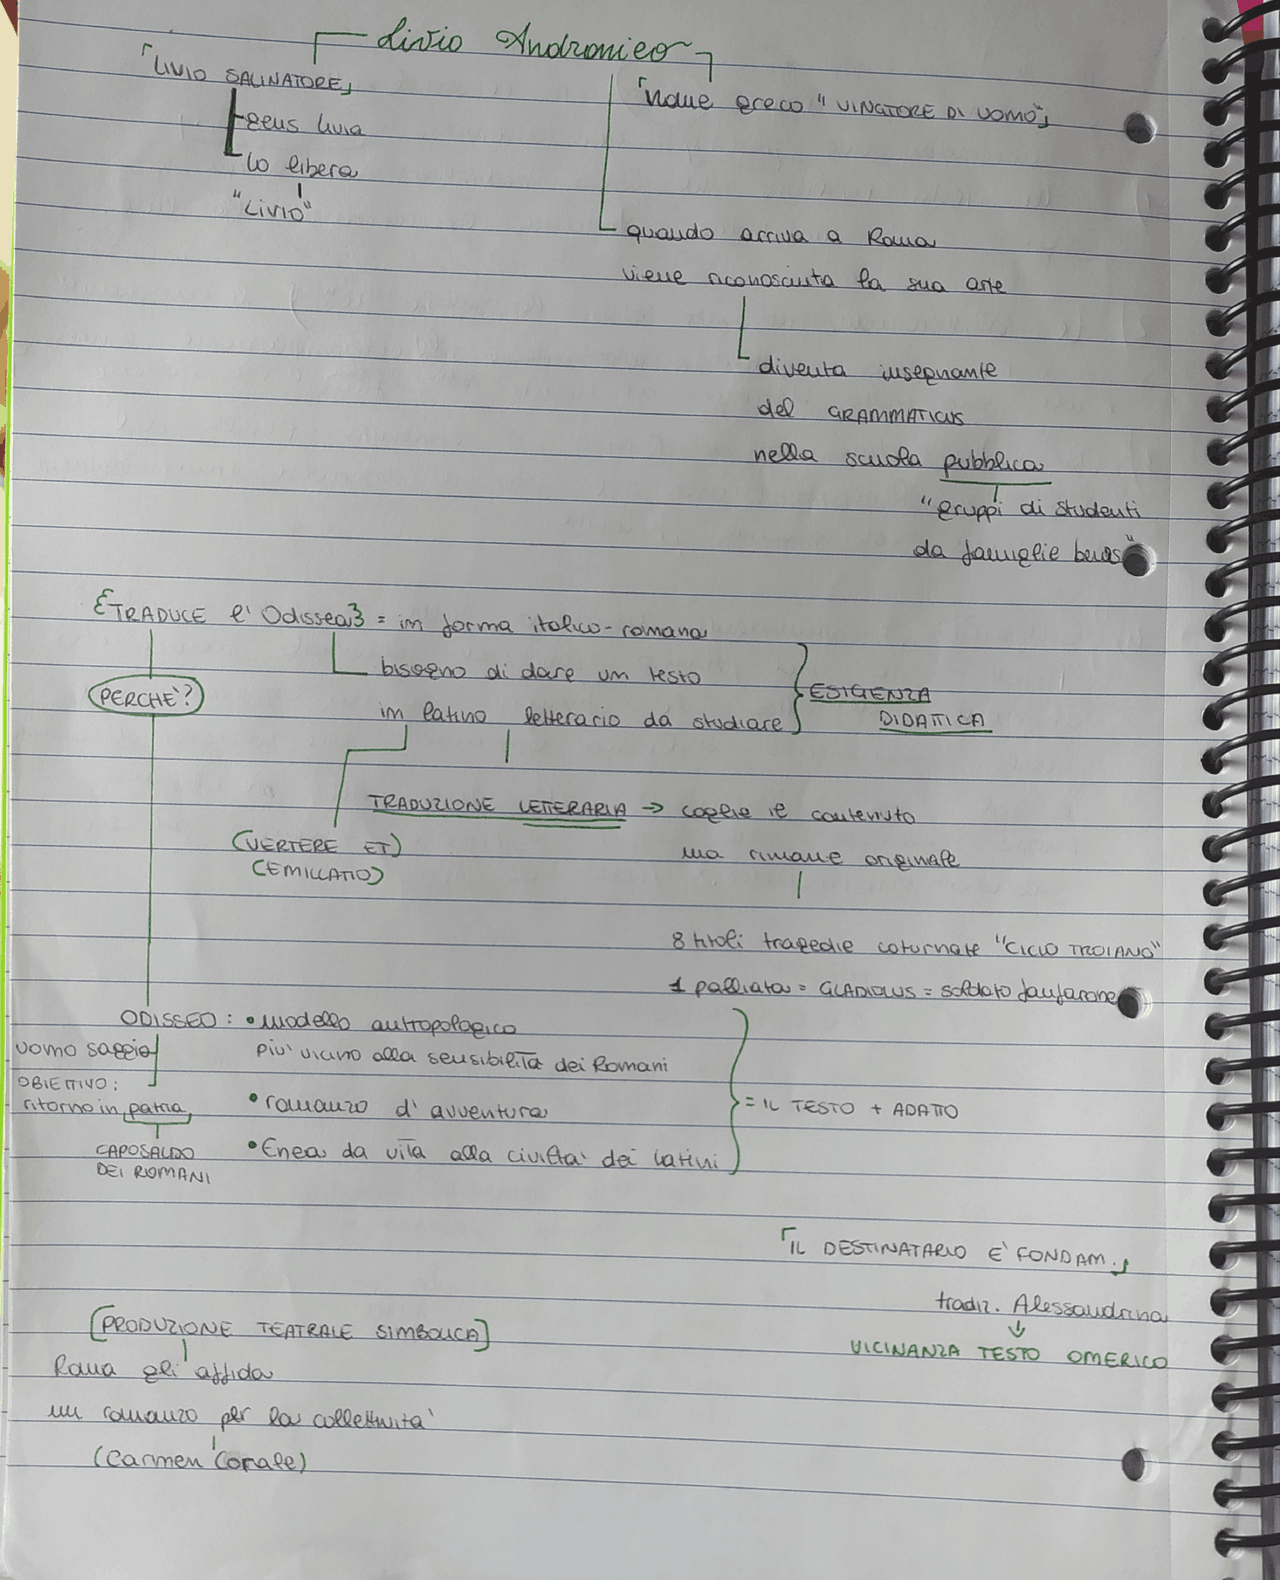 Livio Andronico
「LIVIO SALINATORE」
「Nome greco "VINCITORE DI UOMO"」
gens livia
lo libera
"LIVIO"
quando arriva a Roma
viene riconosciuta la sua arte
diventa insegnante
del GRAMMATICUS
nella scuola pubblica
"gruppi di studenti
da famiglie benes"
{TRADUCE l'Odissea} = in forma italico-romana
bisogno di dare un testo
in latino letterario da studiare
ESIGENZA
DIDATTICA
PERCHÈ?
TRADUZIONE LETTERARIA → coglie il contenuto
ma rimane originale
(VERTERE ET)
(EMULATIO)
8 titoli tragedie coturnate "CICLO TROIANO"
1 palliata = GLADIOLUS = soldato fanfarone
ODISSEO: • modello antropologico
più vicino alla sensibilità dei Romani
uomo saggio
OBIETTIVO:
ritorno in patria
CAPOSALDO
DEI ROMANI
• romanzo d'avventura
• Enea da vita alla civiltà dei latini
= IL TESTO + ADATTO
「IL DESTINATARIO E' FONDAM.」
tradiz. Alessandrina
↓
VICINANZA TESTO OMERICO
[PRODUZIONE TEATRALE SIMBOLICA]
Roma gli affida
un romanzo per la collettività
(Carmen Corale)